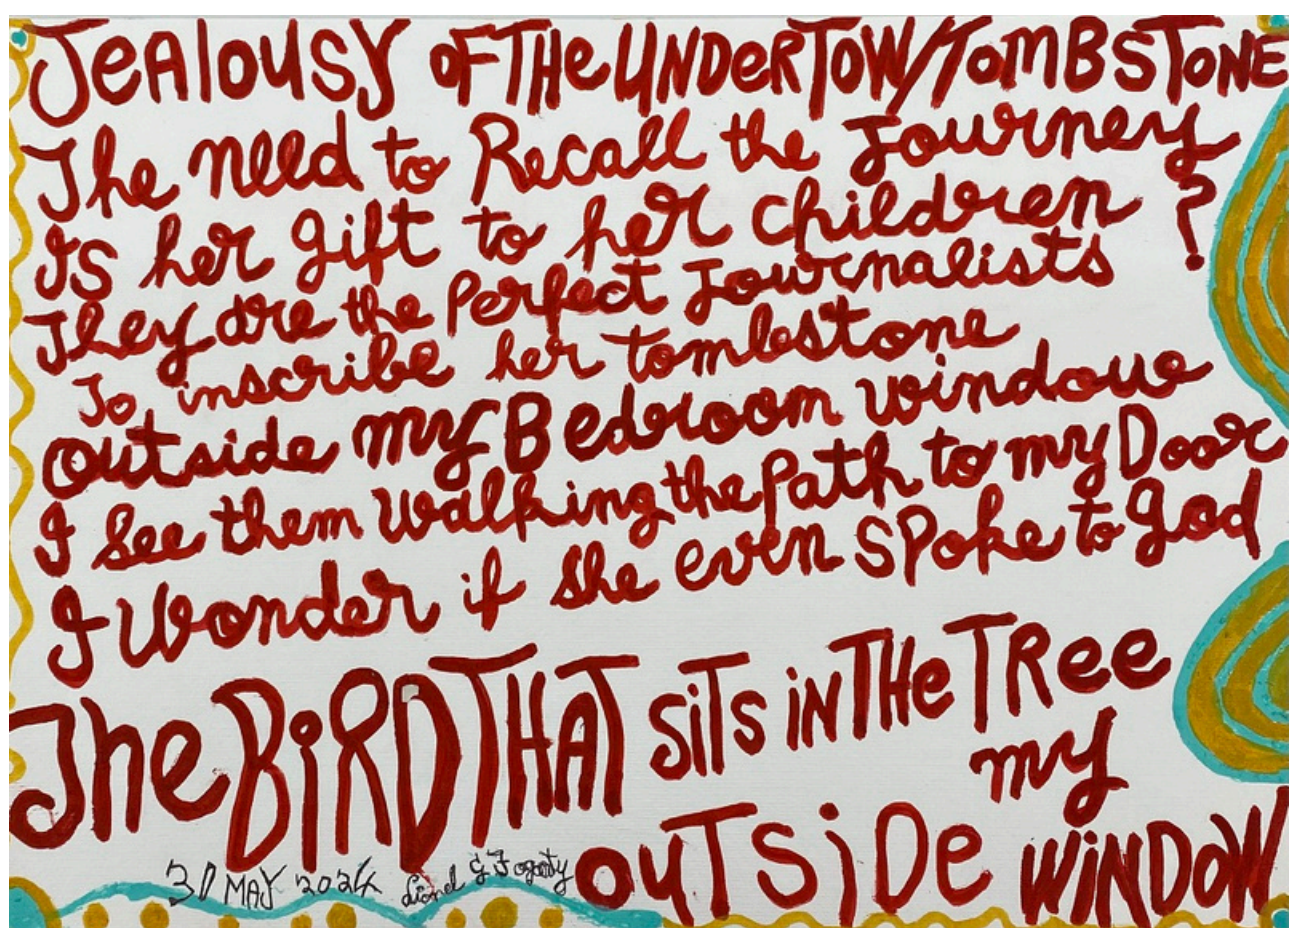 JeAlousy oF THe UNDeRTOW/TOMBSTONE
The need to Recall the Journey
Is her gift to her children ?
They are the Perfect Journalists
To, inscribe her tombstone
outside my Bedroom window
I see them walking the Path to my Door
I Wonder if she even spoke to god
The BiRD THAT SiTS iN THe TRee
my
ouTSiDe WiNDoW
30 MAY 2024 Lionel G Fogarty